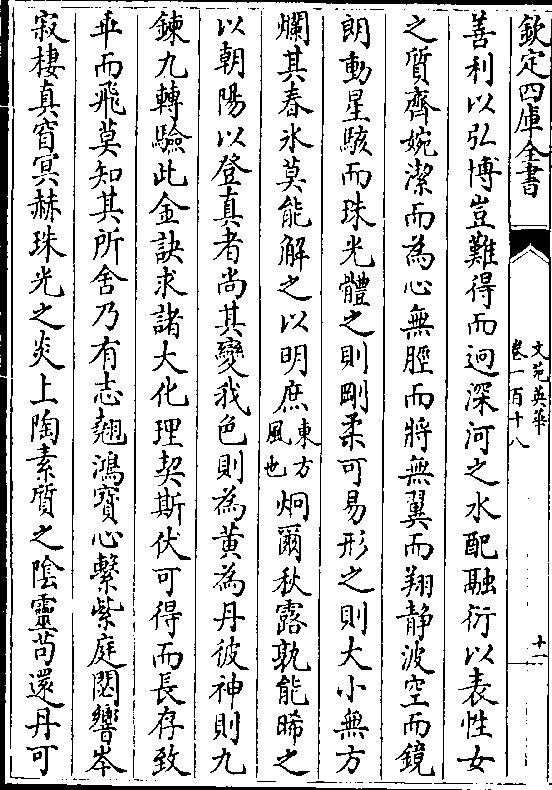 欽定四庫全書
文苑英華
卷一百十八
十一
善利以弘博豈難得而迥深河之水配融衍以表性女
之質齊婉潔而為心無脛而將無翼而翔静波空而鏡
朗動星駭而珠光體之則剛柔可易形之則大小無方
爛其春氷莫能解之以明庶東方風也炯爾秋露孰能晞之
以朝陽以登真者尚其變我色則為黄為丹彼神則九
鍊九轉驗此金訣求諸大化理契斯伏可得而長存致
乖而飛莫知其所舍乃有志翹鴻寶心繫紫庭閟響岑
寂棲真窅冥赫珠光之炎上陶素質之陰靈茍還丹可